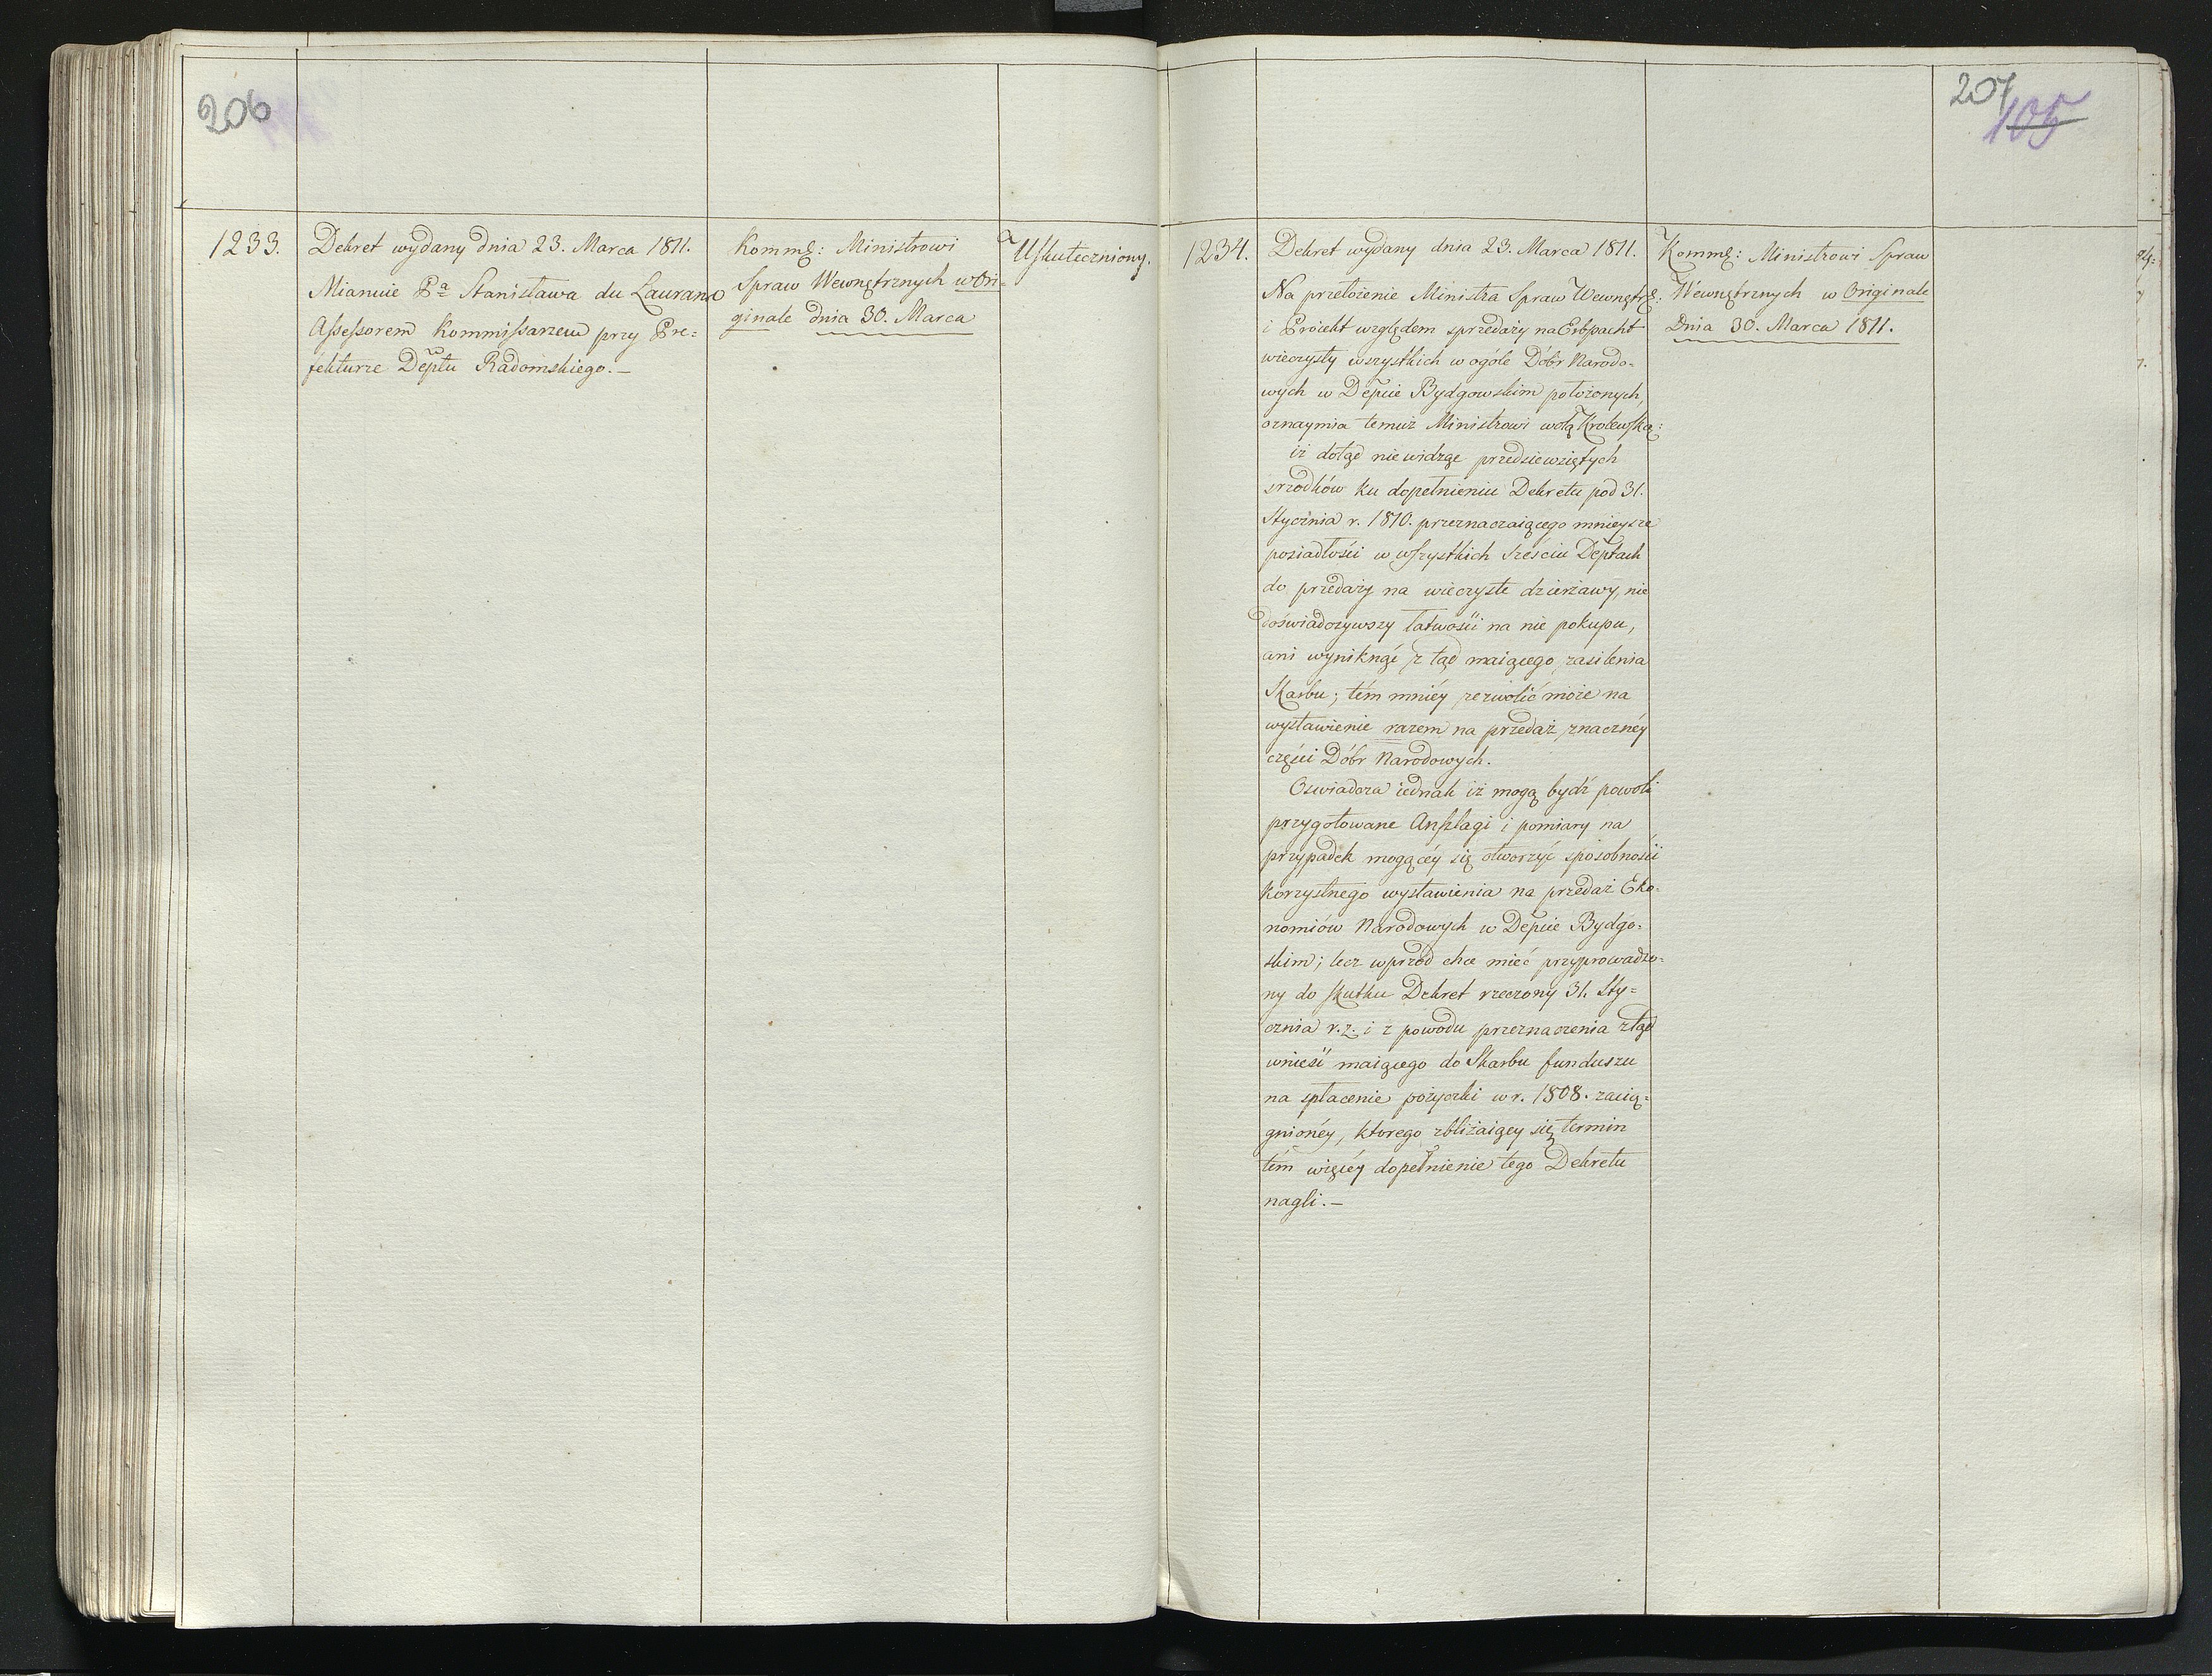 206
1233.
Dekret wydany dnia 23. Marca 1811.
Mianuie Pa Stanisława du Laurans
Assessorem Kommissarzem przy Pre=
fekturze Deptu Radomskiego.—
Kommg: Ministrowi
Spraw Wewnętrznych w Ori=
ginale dnia 30. Marca
Uskuteczniony.
207
105
1234.
Dekret wydany dnia 23. Marca 1811.
Na przełożenie Ministra Spraw Wewnętrz:
i Proiekt względem sprzedaży na Erbpacht
wieczysty wszystkich w ogóle Dóbr Narodo-
wych w Depcie Bydgowskim położonych,
oznaymia temuż Ministrowi wolą Krolewską:
iż dotąd nie widząc przedsiewziętych
srzodków ku dopełnieniu Dekretu pod 31.
Stycznia r. 1810. przeznaczaiącego mnieysze
posiadłości w wszystkich sześciu Deptach
do przedaży na wieczyste dzierżawy, nie
doświadczywszy łatwości na nie pokupu,
ani wyniknąć z tąd maiącego zasilenia
Skarbu; tém mniéy zezwolić może na
wystawienie razem na przedaż znacznéy
części Dóbr Narodowych.
Oswiadcza iednak iż mogą bydź powoli
przygotowane Anszlagi i pomiary na
przypadek mogącéy się otworzyć sposobności
korzystnego wystawienia na przedaż Eko-
nomiów Narodowych w Depcie Bydgo-
skim; lecz wprzód chce mieć przyprowadzo-
ny do skutku Dekret rzeczony 31. Sty=
cznia r. z. i z powodu przeznaczenia ztąd
wnieść maiącego do Skarbu funduszu
na spłacenie pożyczki w r. 1808. zacią-
gnionéy, ktorego zbliżaiący się termin
tém więcéy dopełnienie tego Dekretu
nagli.—
Kommg: Ministrowi Spraw
Wewnętrznych w Originale
Dnia 30. Marca 1811.